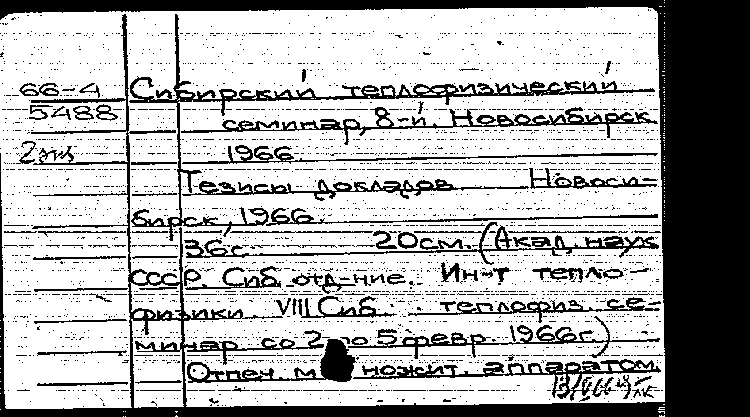 66-4 Сибирский теплофизический
5488 семинар, 8-й. Новосибирск
2 экз 1966.
Тезисы докладов. Новоси-
бирск, 1966.
36 с. 20см. (Акад. наук
СССР. Сиб. отд-ние. Ин-т тепло-
физики. VIII Сиб. теплофиз. се-
минар со 2 по 5 февр. 1966г.)
Отпеч. множит. аппаратом.